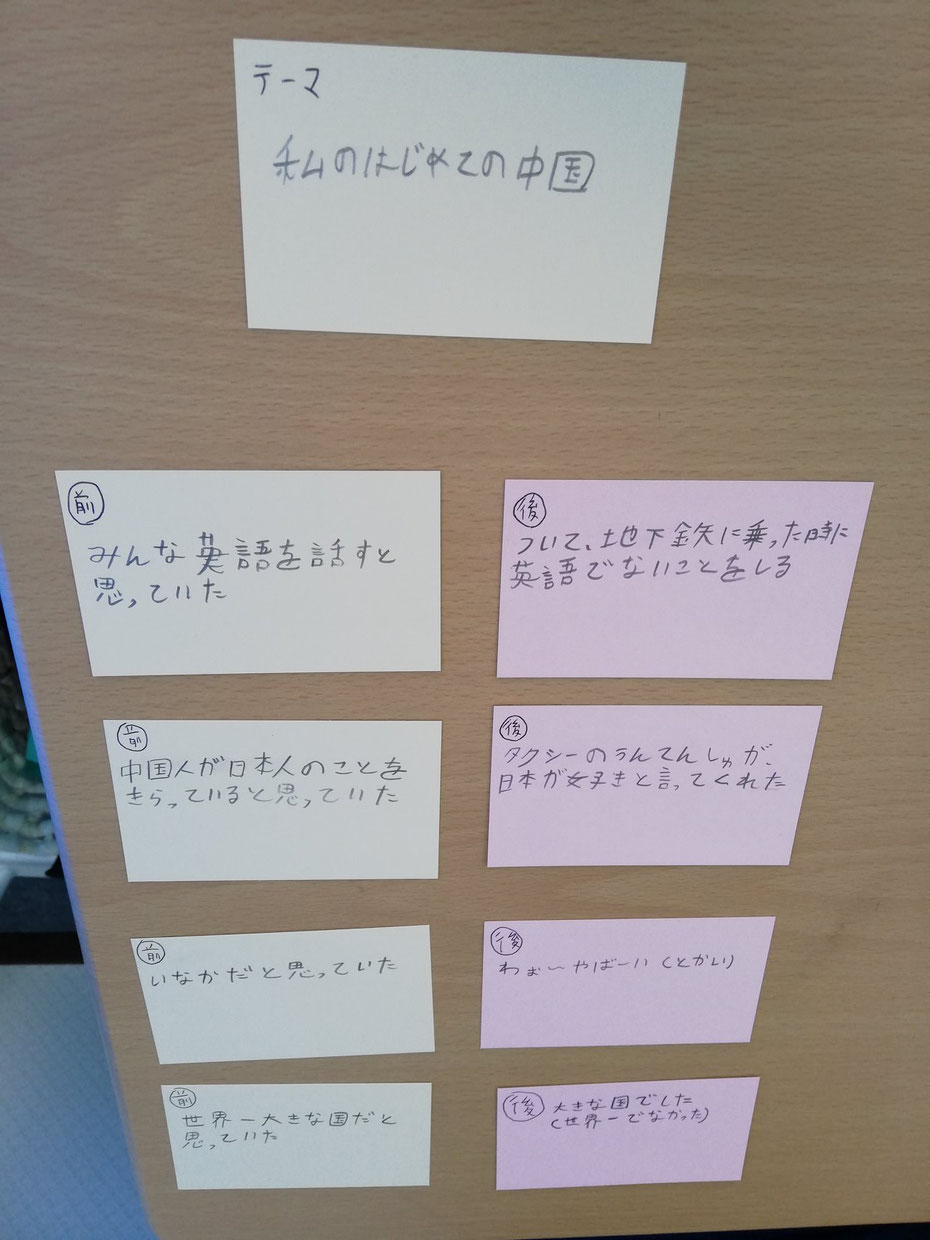 テーマ
私のはじめての中国
前
みんな英語を話すと
思っていた
後
ついて、地下鉄に乗った時に
英語でないことをしる
前
中国人が日本人のことを
きらっていると思っていた
後
タクシーのうんてんしゅが、
日本が好きと言ってくれた
前
いなかだと思っていた
後
わぁ〜やばーい(とかい)
前
世界一大きな国だと
思っていた
後
大きな国でした
(世界一でなかった)